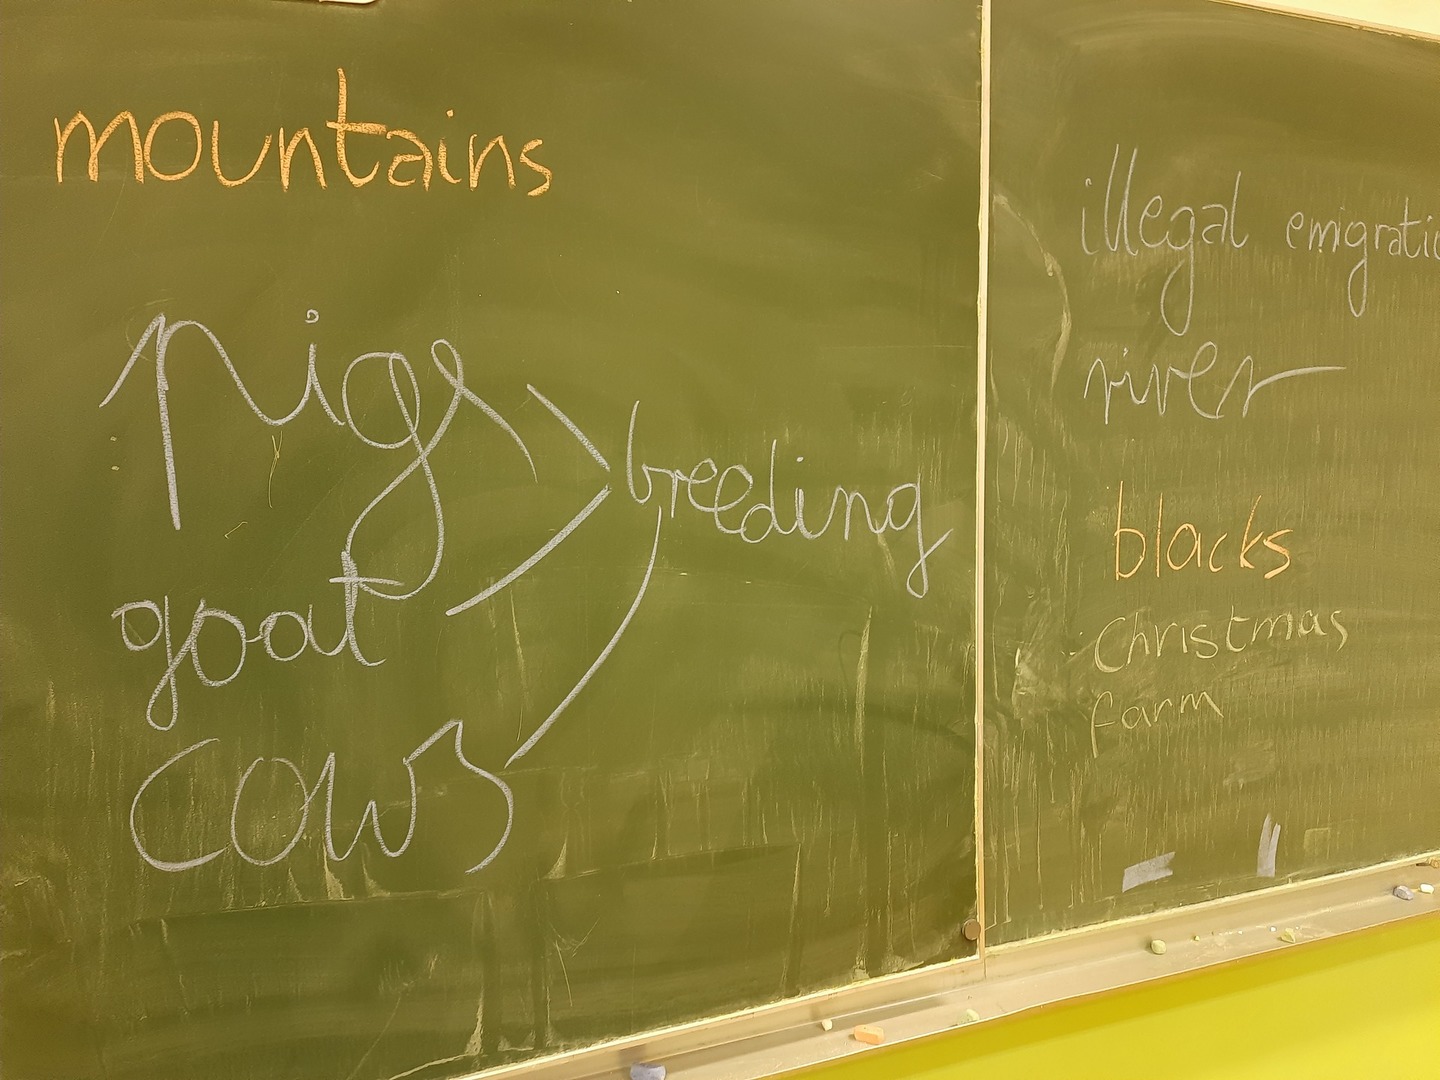 mountains
pigs
goat
cows
breeding
illegal emigratio
river
blacks
Christmas
farm